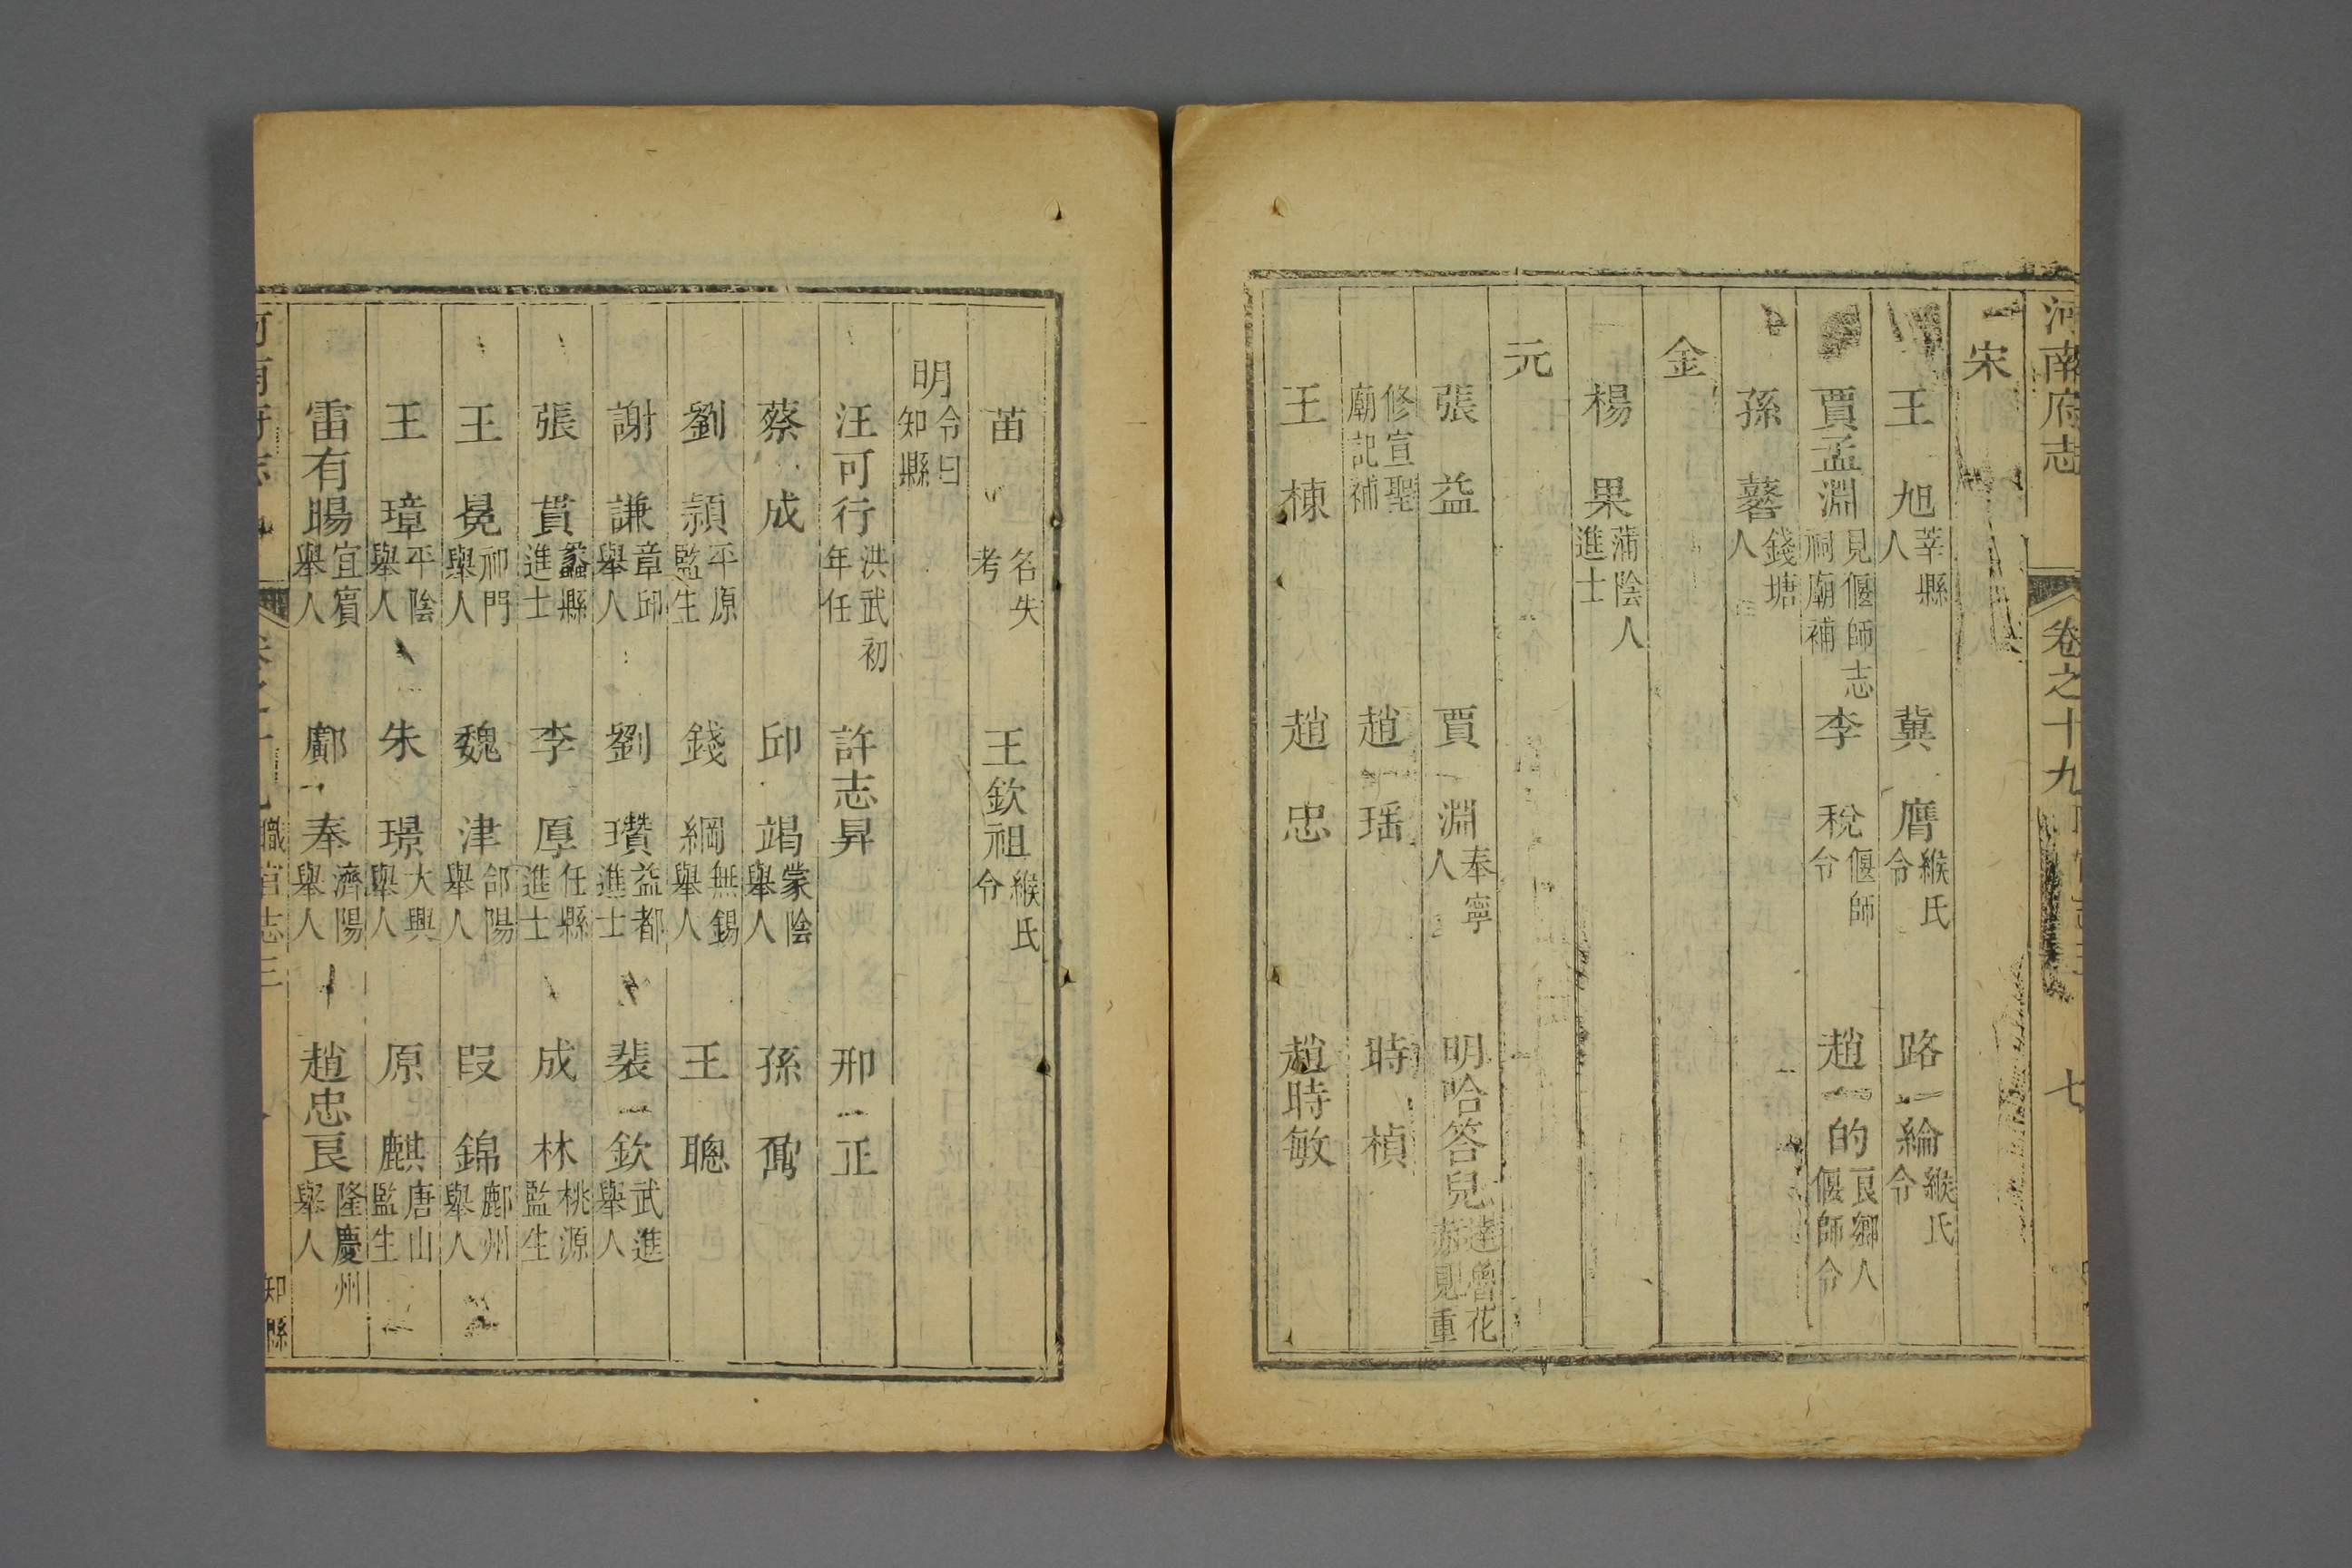 河南府志 卷之十九 七
宋
王旭 莘縣人 冀膺 緱氏令 路綸 緱氏令
賈孟淵 見偃師志祠廟補 李稅 偃師令 趙的 良鄉人偃師令
孫薵 錢塘人
金
楊果 蒲陰人進士
元
張益 賈淵 奉寧人 明哈答兒 達魯花赤見重
修宣聖廟記補 趙瑤 時楨
王棟 趙忠 趙時敏
苗 名失考 王欽祖 緱氏令
明 令曰知縣
汪可行 洪武初年任 許志昇 邢正
蔡成 邱竭 蒙陰舉人 孫奫
劉潁 平原監生 錢綱 無錫舉人 王聰
謝謙 章邱舉人 劉瓚 益都進士 裴欽 武進舉人
張蕡 蠡縣進士 李厚 任縣進士 成林 桃源監生
王冕 祁門舉人 魏津 郃陽舉人 段錦 鄜州舉人
王璋 平陰舉人 朱璟 大興舉人 原麒 唐山監生
雷有暘 宜賓舉人 鄺奉 濟陽舉人 趙忠良 隆慶州舉人
河南府志 卷之十九 職官志三 知縣